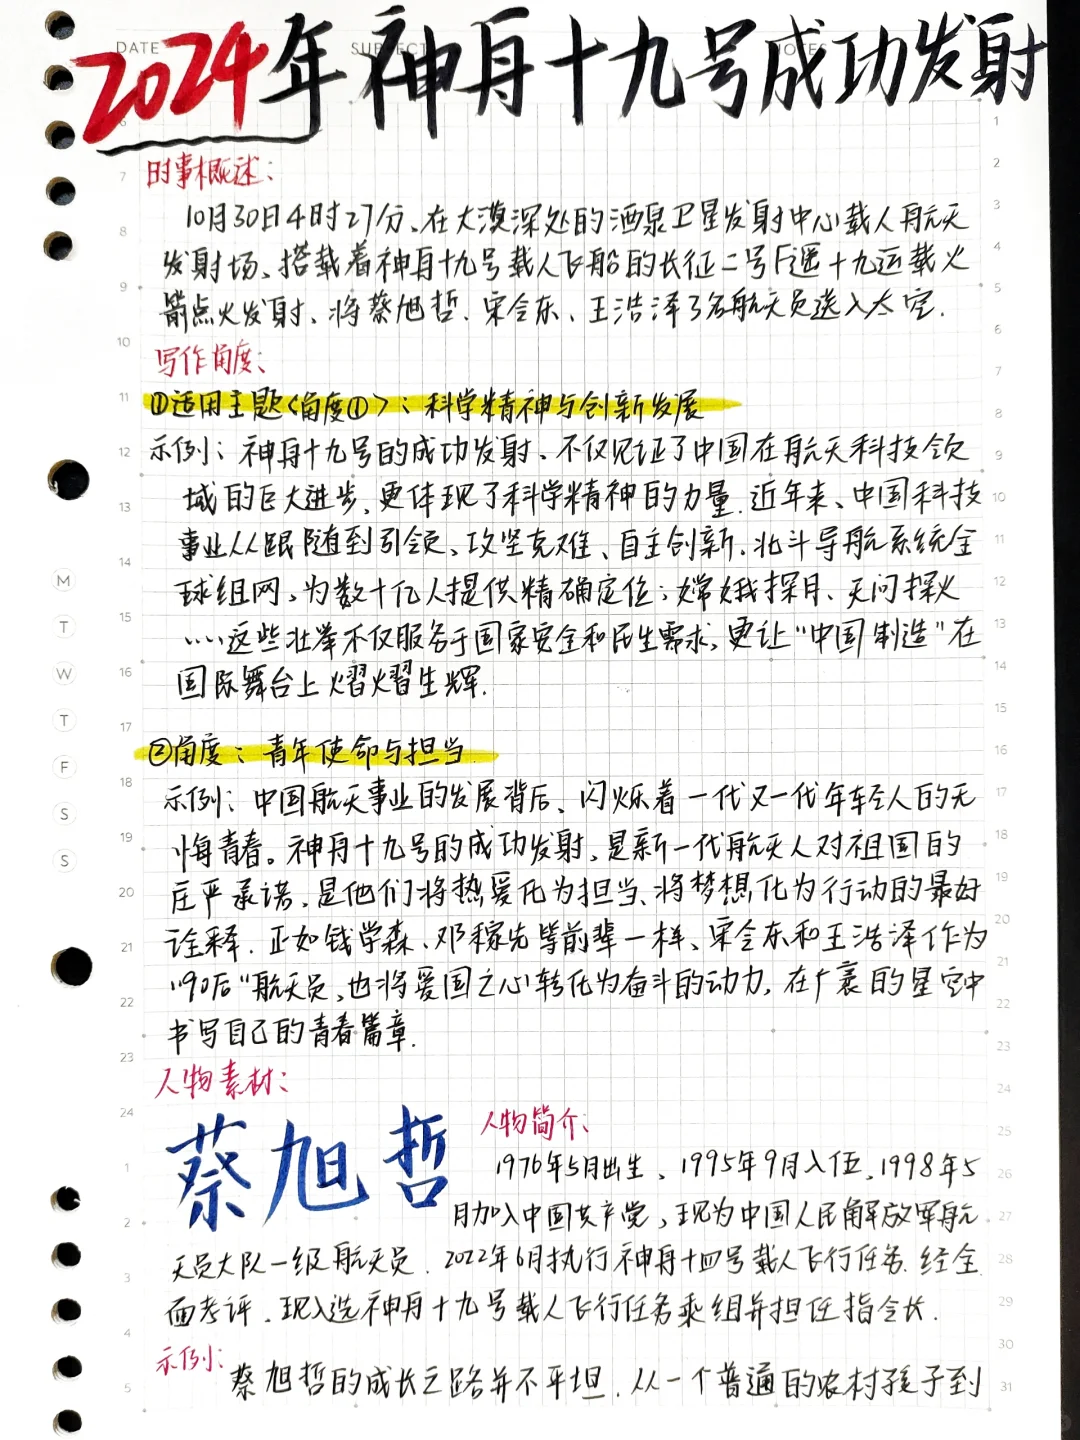 DATE SUBJECT NOTES
2024年神舟十九号成功发射
时事概述：
10月30日4时27分、在大漠深处的酒泉卫星发射中心载人航天
发射场、搭载着神舟十九号载人飞船的长征二号F遥十九运载火
箭点火发射、将蔡旭哲、宋令东、王浩泽3名航天员送入太空.
写作角度：
①适用主题<角度①>：科学精神与创新发展
示例：神舟十九号的成功发射、不仅见证了中国在航天科技领
域的巨大进步、更体现了科学精神的力量.近年来、中国科技
事业从跟随到引领、攻坚克难、自主创新.北斗导航系统全
球组网、为数十亿人提供精确定位；嫦娥探月、天问探火
……这些壮举不仅服务于国家安全和民生需求、更让"中国制造"在
国际舞台上熠熠生辉.
②角度：青年使命与担当
示例：中国航天事业的发展背后、闪烁着一代又一代年轻人的无
悔青春。神舟十九号的成功发射、是新一代航天人对祖国的
庄严承诺、是他们将热爱化为担当、将梦想化为行动的最好
诠释.正如钱学森、邓稼先等前辈一样、宋令东和王浩泽作为
"90后"航天员、也将爱国之心转化为奋斗的动力,在广袤的星空中
书写自己的青春篇章.
人物素材：
蔡旭哲
人物简介：
1976年5月出生、1995年9月入伍、1998年5
月加入中国共产党、现为中国人民解放军航
天员大队一级航天员.2022年6月执行神舟十四号载人飞行任务.经全
面考评.现入选神舟十九号载人飞行任务乘组并担任指令长.
示例：
蔡旭哲的成长之路并不平坦.从一个普通的农村孩子到
M
T
W
T
F
S
S
6
7
8
9
10
11
12
13
14
15
16
17
18
19
20
21
22
23
24
1
2
3
4
5
1
2
3
4
5
6
7
8
9
10
11
12
13
14
15
16
17
18
19
20
21
22
23
24
25
26
27
28
29
30
31